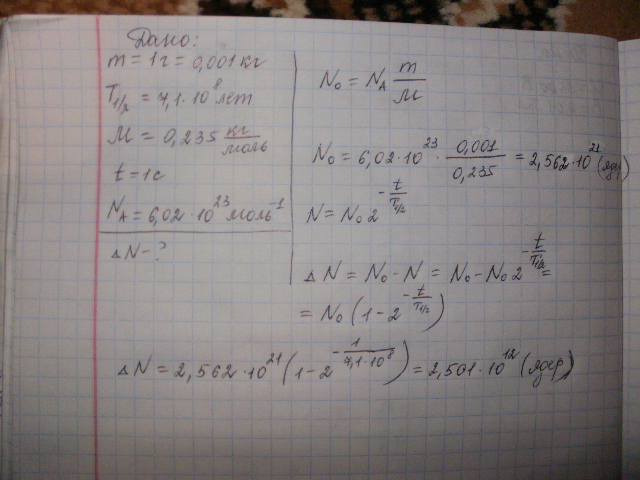 Дано:
m = 1 г = 0,001 кг
T₁/₂ = 7,1·10⁸ лет
M = 0,235 кг/моль
t = 1 с
N_A = 6,02·10²³ моль⁻¹
ΔN – ?
N₀ = N_A m/M
N₀ = 6,02·10²³ · 0,001/0,235 = 2,562·10²¹ (ядер)
N = N₀ 2^(-t/T₁/₂)
ΔN = N₀ – N = N₀ – N₀ 2^(-t/T₁/₂) =
= N₀ (1 – 2^(-t/T₁/₂))
ΔN = 2,562·10²¹ (1 – 2^(-1/(7,1·10⁸))) = 2,501·10¹² (ядер)